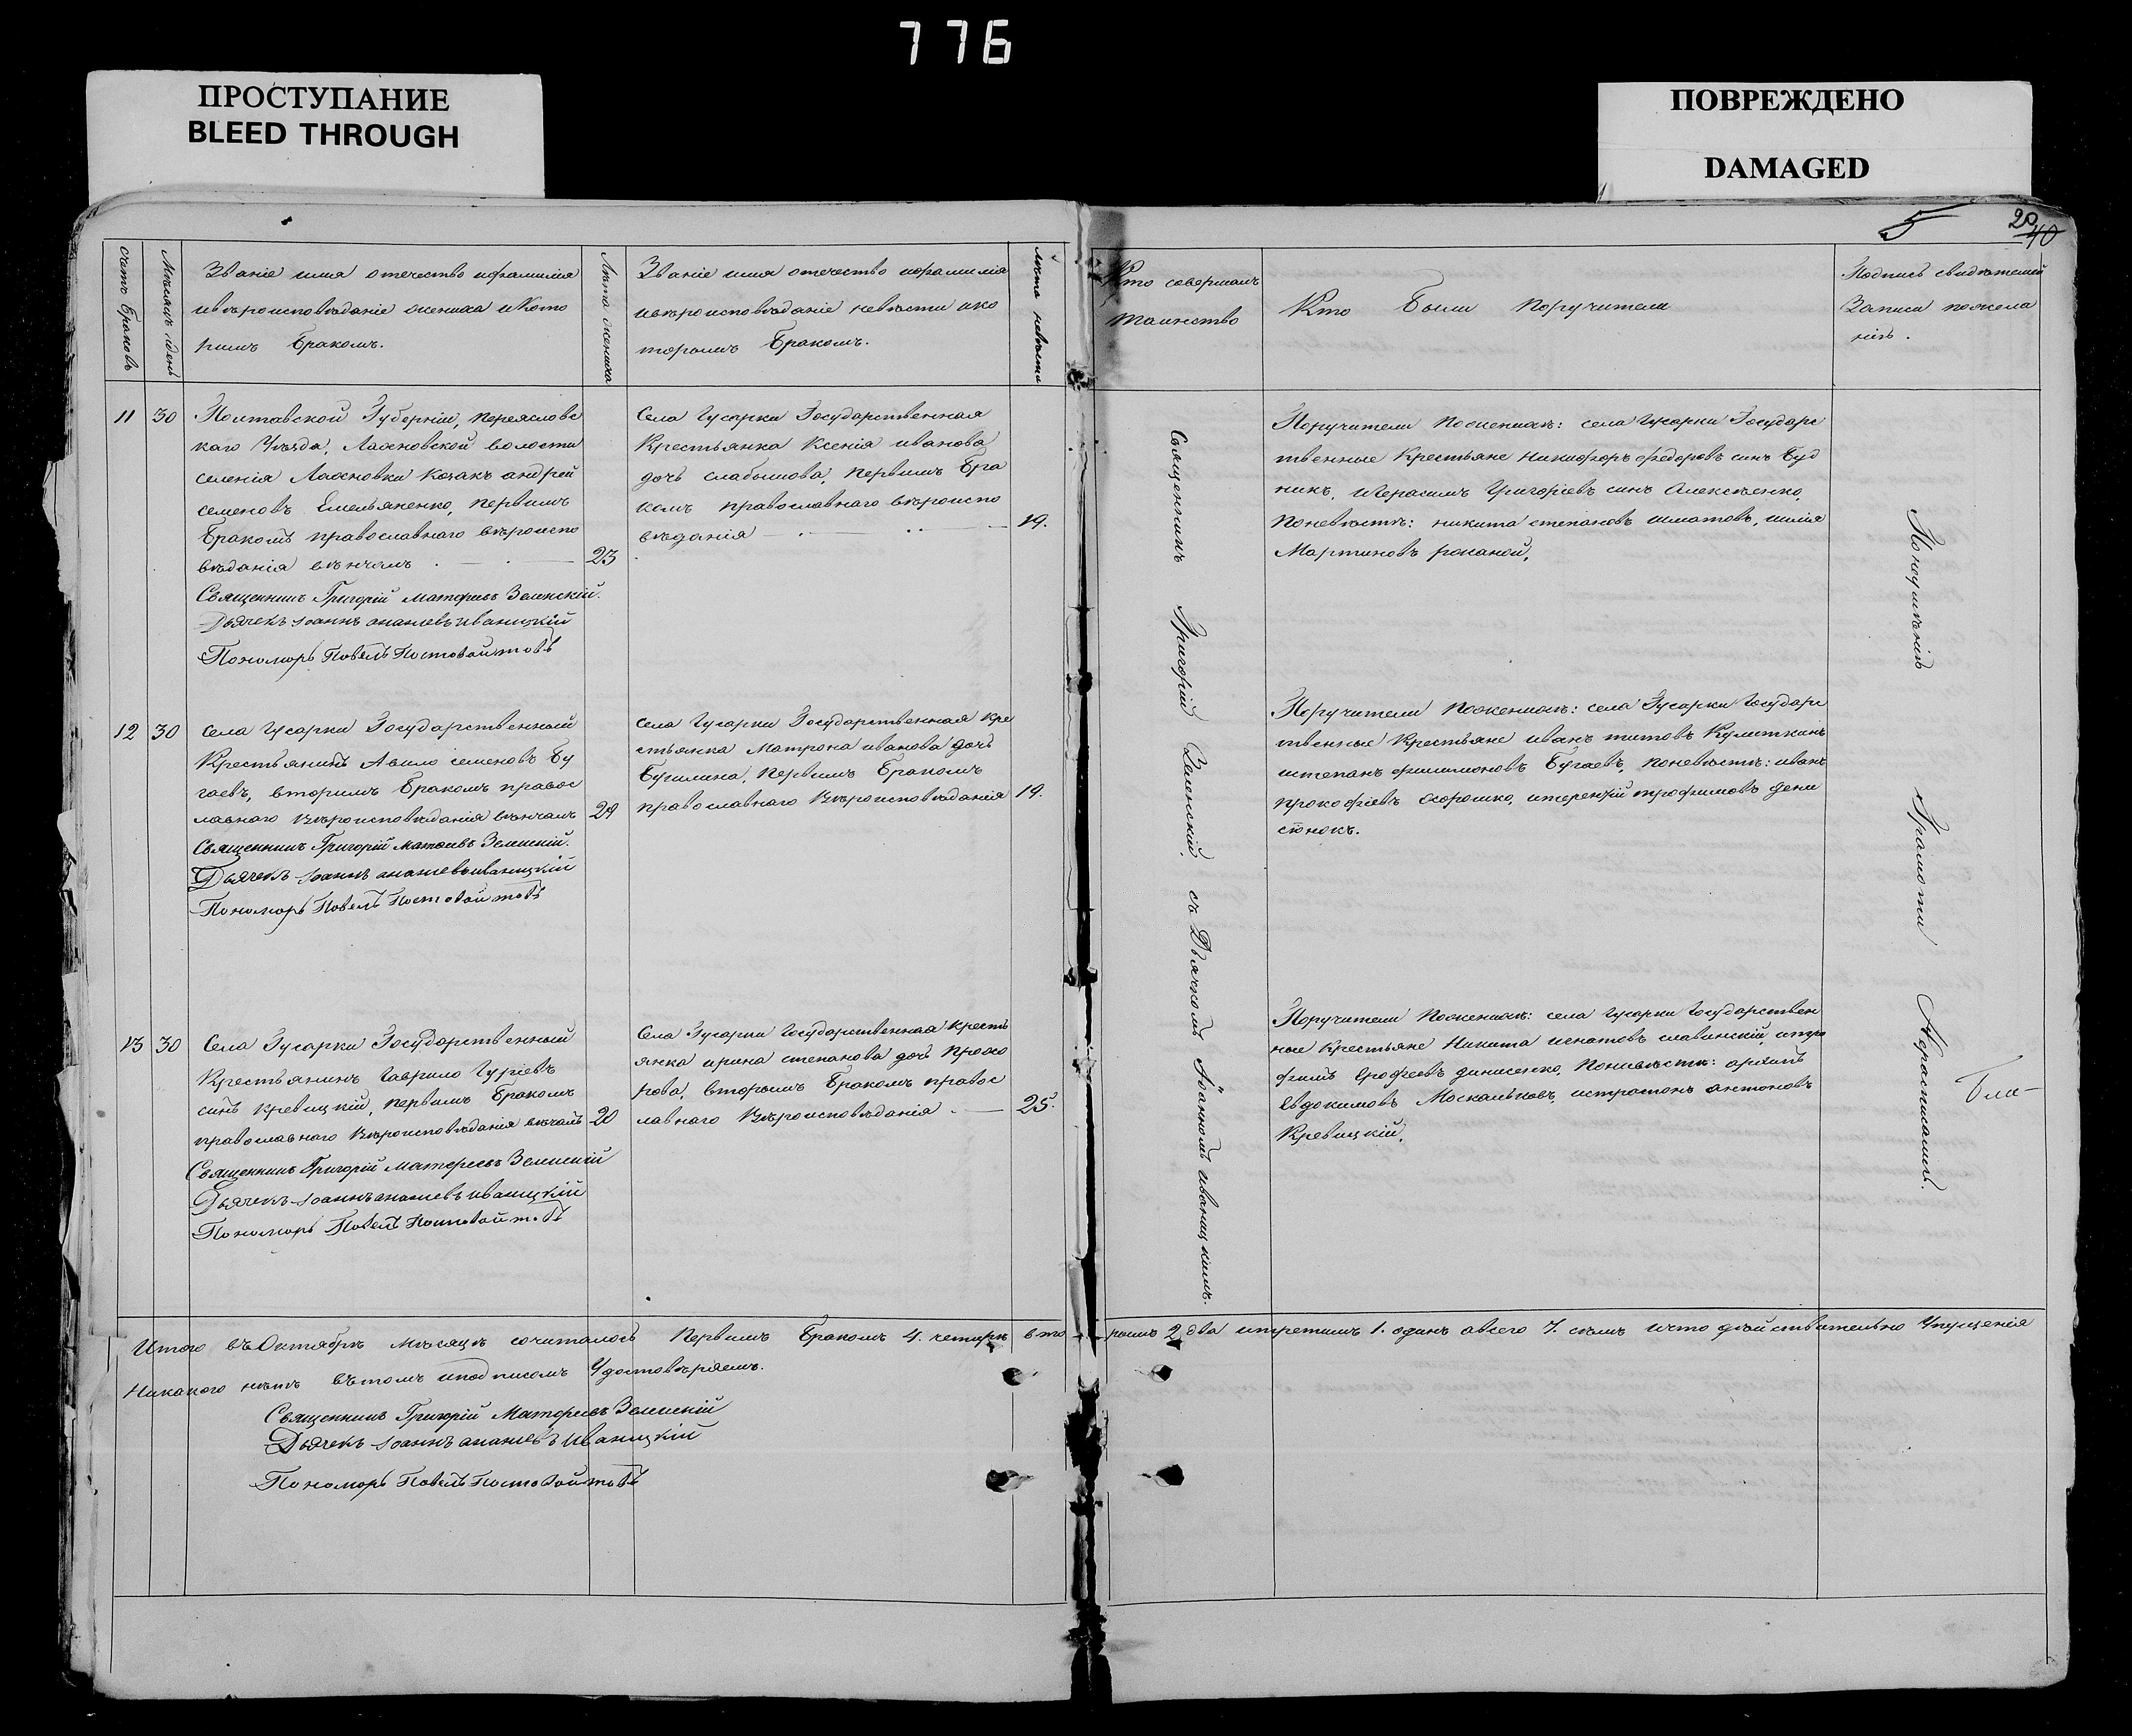 776
ПРОСТУПАНИЕ
BLEED THROUGH
ПОВРЕЖДЕНО
DAMAGED
5
20
40
счетъ браковъ
Мѣсяцъ и день
Званіе имя отечество ифамилія
ивѣроисповѣданіе жениха икото
римъ бракомъ.
Лѣта жениха
Званіе имя отечество ифамилія
ивѣроисповѣданіе невѣсти ико
торымъ бракомъ.
лѣта невѣсти
Кто совершалъ
таинство
Кто были поручители
Подпись свидѣтелей
Записи пожела
нію.
11 30
Полтавской Губерніи, переяславс
каго Уѣзда, волости
селенія козакъ андрей
семеновъ Емельяненко, первимъ
бракомъ православнаго вѣроиспо
вѣданія вѣнчалъ
23
Священникъ Григорій Матфеевъ Зелинскій.
Дьячекъ Іоаннъ ананіевъ иваницкій
Пономарь Павелъ
Села Гусарки Государственная
Крестьянка Ксенія иванова
дочь первимъ бра
комъ православнаго вѣроиспо
вѣданія
19.
Поручители пожениху: села Гусарки Государс
твенные Крестьяне никифоръ федоровъ синъ буд
никъ, игерасимъ Григоріевъ синъ Алексѣенко,
поневѣстѣ: никита степановъ илія
Мартиновъ
12 30
Села Гусарки Государственный
Крестьянинъ семеновъ бу
гаевъ, вторимъ бракомъ правос
лавнаго вѣроисповѣданія вѣнчалъ
29
Священникъ Григорій Матфеевъ Зелинскій.
Дьячекъ Іоаннъ ананіевъ иваницкій
Пономарь Павелъ
Села Гусарки Государственная кре
стьянка Матрона иванова дочь
первимъ бракомъ
православнаго вѣроисповѣданія
19.
Поручители пожениху: села Гусарки Государс
твенные Крестьяне иванъ титовъ
истепанъ филимоновъ бугаевъ, поневѣстѣ: иванъ
прокофіевъ итерентій трофимовъ дени
сюнокъ.
13 30
Села Гусарки Государственный
Крестьянинъ гаврило Гуріевъ
синъ кревицкій, первимъ бракомъ
православнаго вѣроисповѣданія
20
Священникъ Григорій Матфеевъ Зелинскій
Дьячекъ Іоаннъ ананіевъ иваницкій
Пономарь Павелъ
Села Гусарки Государственная кресть
янка ирина степанова дочь прохо
рова, вторымъ бракомъ правос
лавнаго вѣроисповѣданія
25.
Поручители пожениху: села Гусарки Государствен
ные Крестьяне Никита игнатовъ славинскій, итро
фимъ ерофеевъ денисенко, поневѣстѣ: архипъ
Евдокимовъ Москальковъ, истратонъ антоновъ
Кревицкій.
Священникъ Григорій Зелинскій, съ Дьячкомъ Іоанномъ иваницкимъ.
Понеумѣнію Грамоти
Итого въ Октябрѣ мѣсяцѣ сочиталось первимъ бракомъ 4. четыре вто римъ 2 два итретимъ 1. одинъ авсего 7. семь ичто дѣйствительно Упущенія
Никакого нѣтъ вътомъ иподписомъ Удостовѣряемъ.
Священникъ Григорій Матфеевъ Зелинскій
Дьячекъ Іоаннъ ананіевъ иваницкій
Пономарь Павелъ